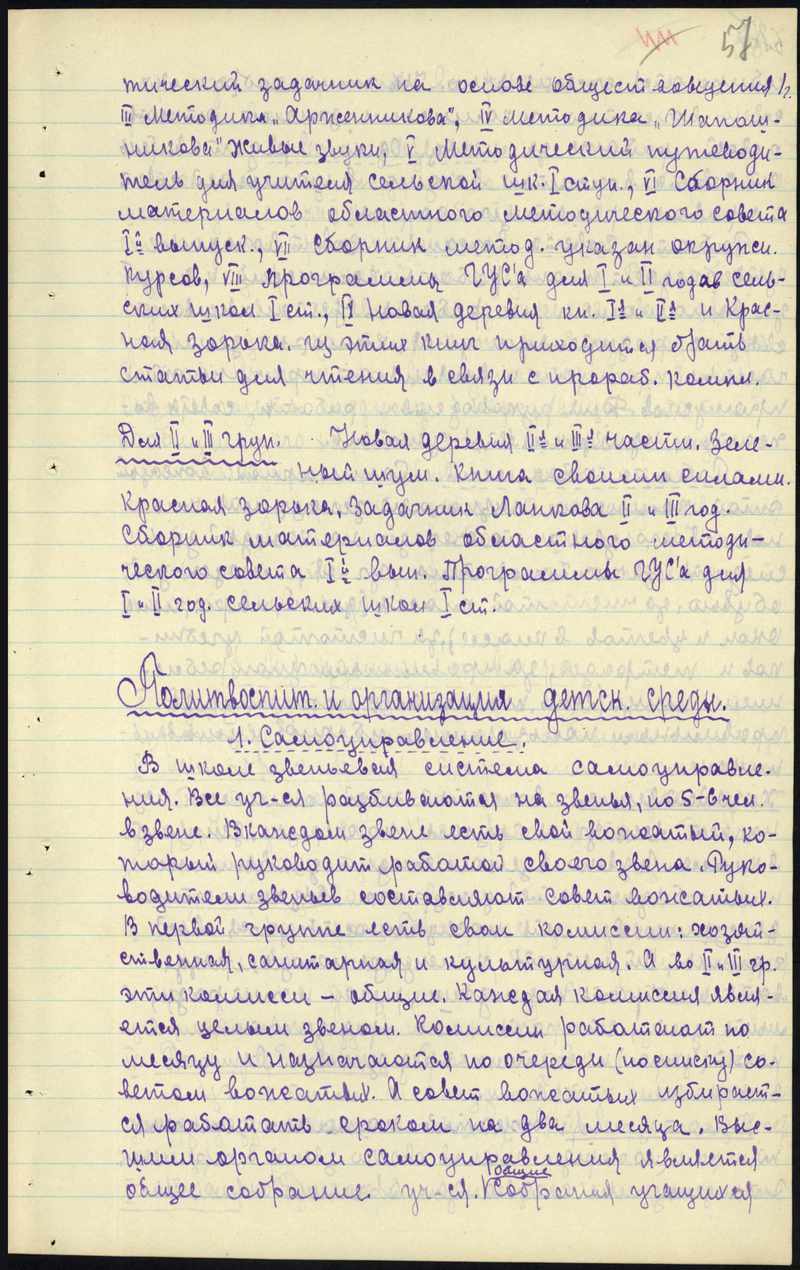 57
тический задачник на основе обществоведения 1 г.
III Методика „Арженникова", IV методика „Шапош-
никова" Живые звуки, V Методический путеводи-
тель для учителя сельской шк. I ступ., VI Сборник
материалов областного методического совета
I-й выпуск., VII Сборник метод. указан окружн.
курсов, VIII программы ГУС'а для I и II годов сель-
ских школ I ст., IX Новая деревня кн. I-я и II-я и Крас-
ная зорька. Из этих книг приходится брать
статьи для чтения в связи с прораб. компл.
Для II и III груп. Новая деревня II-я и III-я части. Зеле-
ный шум. Книга своими силами.
Красная зорька. Задачник Ланкова II и III год.
Сборник материалов областного методи-
ческого совета I-й вып. Программы ГУС'а для
I и II год. сельских школ I ст.
Политвоспит. и организация детск. среды.
1. Самоуправление.
В школе звеньевая система самоуправле-
ния. Все уч-ся разбиваются на звенья, по 5-6 чел.
в звене. В каждом звене есть свой вожатый, ко-
торый руководит работой своего звена. Руко-
водители звеньев составляют совет вожатых.
В первой группе есть свои комиссии: хозяй-
ственная, санитарная и культурная. А во II и III гр.
эти комисси – общие. Каждая комиссия явля-
ется целым звеном. Комиссии работают по
месяцу и назначаются по очереди (по списку) со-
ветом вожатых. А совет вожатых избирает-
ся работать сроком на два месяца. Выс-
шим органом самоуправления является
общие
общее собрание уч-ся. Собрания учащихся